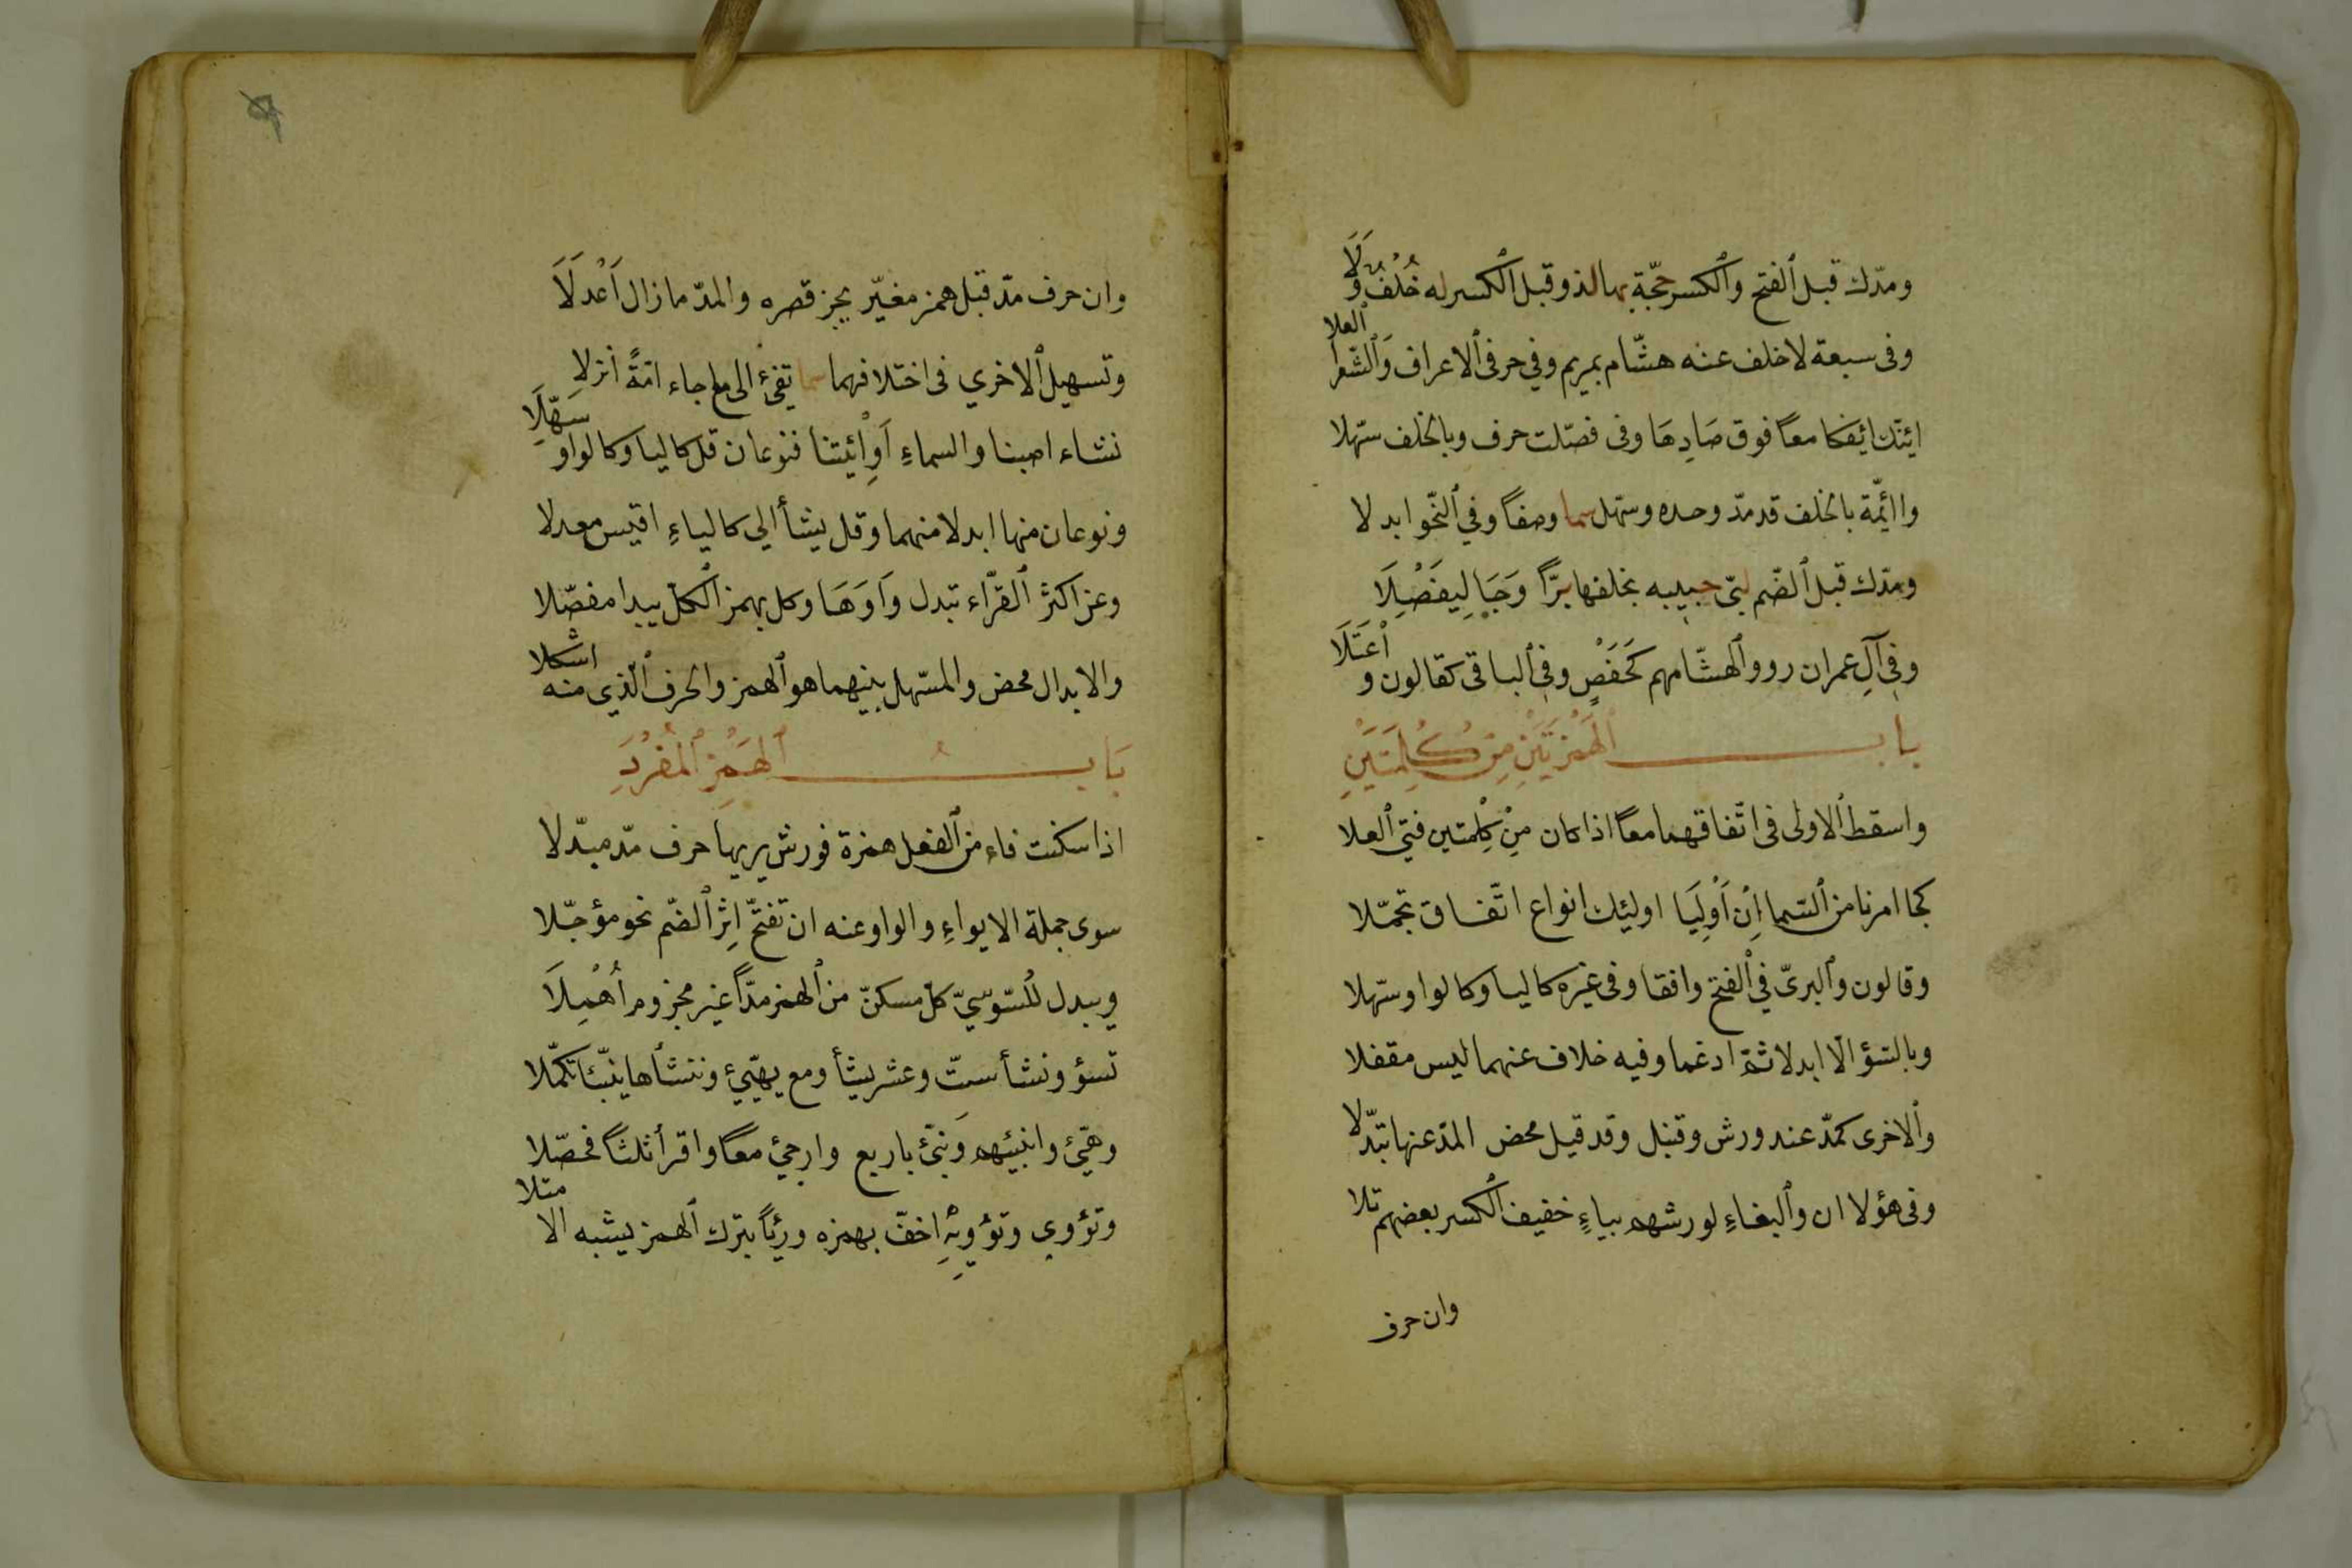 ومدّك قبل ٱلفتح وٱلكسر حجّة بها لذ وقبل ٱلكسر له خُلْفٌ وَلَا
وفى سبعة لا خلف عنه هشّام بمريم وفي حرفى ٱلاعراف وَٱلشّعرا ٱلعلا
ائنّك ائفكا معًا فوق صَادِهَا وفى فصّلت حرف وبالخلف سّهلا
واائمّة بالخلف قد مدّ وحده وسهّل سما وصفًا وفي ٱلنّحو ابدلا
ومدّك قبل ٱلضّم لبّى حبيبه بخلفها برًّا وَجَا لِيفَصْلَا
وفي آلِ عمران رووا لهشّامهم كَحَفْصٍ وفى ٱلباقى كقالون وٱعْتَلَا
باب ٱلهَمْزَتَيْنِ مِنْ كُلِمَتَيْنِ
واسقط ٱلاولى فى اتّفاقهما معًا اذا كان مِنْ كِلْمتين فتى ٱلعلا
كجا امرنا من ٱلسّما اِنْ اَوْلِيَا اوليئك انواع اتّفاق تجمّلا
وقالون وٱلبزىّ في ٱلفتح وافقا وفى غيره كاليا وكالواو سّهلا
وبالسّؤ الّا ابدلا ثمّ ادغما وفيه خلاف عنهما ليس مقفلا
وٱلاخرى كمدّ عند ورش وقنبل وقد قيل محض المدّ عنها تبدّلا
وفى هؤلا ان وٱلبغاءِ لورشهم بياءٍ خفيف ٱلكسر بعضهم تلا
وان حرف
وان حرف مدّ قبل همز مغيّر يجز قصره والمدّ ما زال اَعْدلَا
وتسهيل ٱلاخري فى اختلافهما سما تفئ الى مع جاء امّةً انزلا
نشاء اصبنا والسماءِ اَوِٱئتنا فنوعان قل كاليا وكالواو سَهّلَا
ونوعان منها ابدلا منهما وقل يشأ الي كالياءِ اقيس معدلا
وعن اكثر ٱلقرّاء تبدل وَاوَهَا وكل بهمز ٱلكلّ يبدا مفصّلا
والابدال محض والمسّهل بينهما هو ٱلهمز والحرف ٱلّذي منه اشكلا
بَابُ ٱلهَمْزِ ٱلمُفْرَدِ
اذا سكنت فاء من ٱلفعل همزة فورش يريها حرف مدّ مبدّلا
سوى جملة الايواءِ والواو عنه ان تفتّح اِثر ٱلضّم نحو مؤجّلا
ويبدل للسّوسيّ كلّ مسكنّ من ٱلهمز مدًّا غير مجزوم اُهْمِلَا
تسؤ ونشأ ستّ وعشر يشأ ومع يهيّئ وننشأها ينبّئا تكمّلا
وهيّئ وانبئهم وَنبّئ باربع وارجئ معًا واقرأ ثلثًا فحصّلا
وتؤوي وتؤويهْ اخفّ بهمزه ورئيًا بترك ٱلهمز يشبه الامتلا